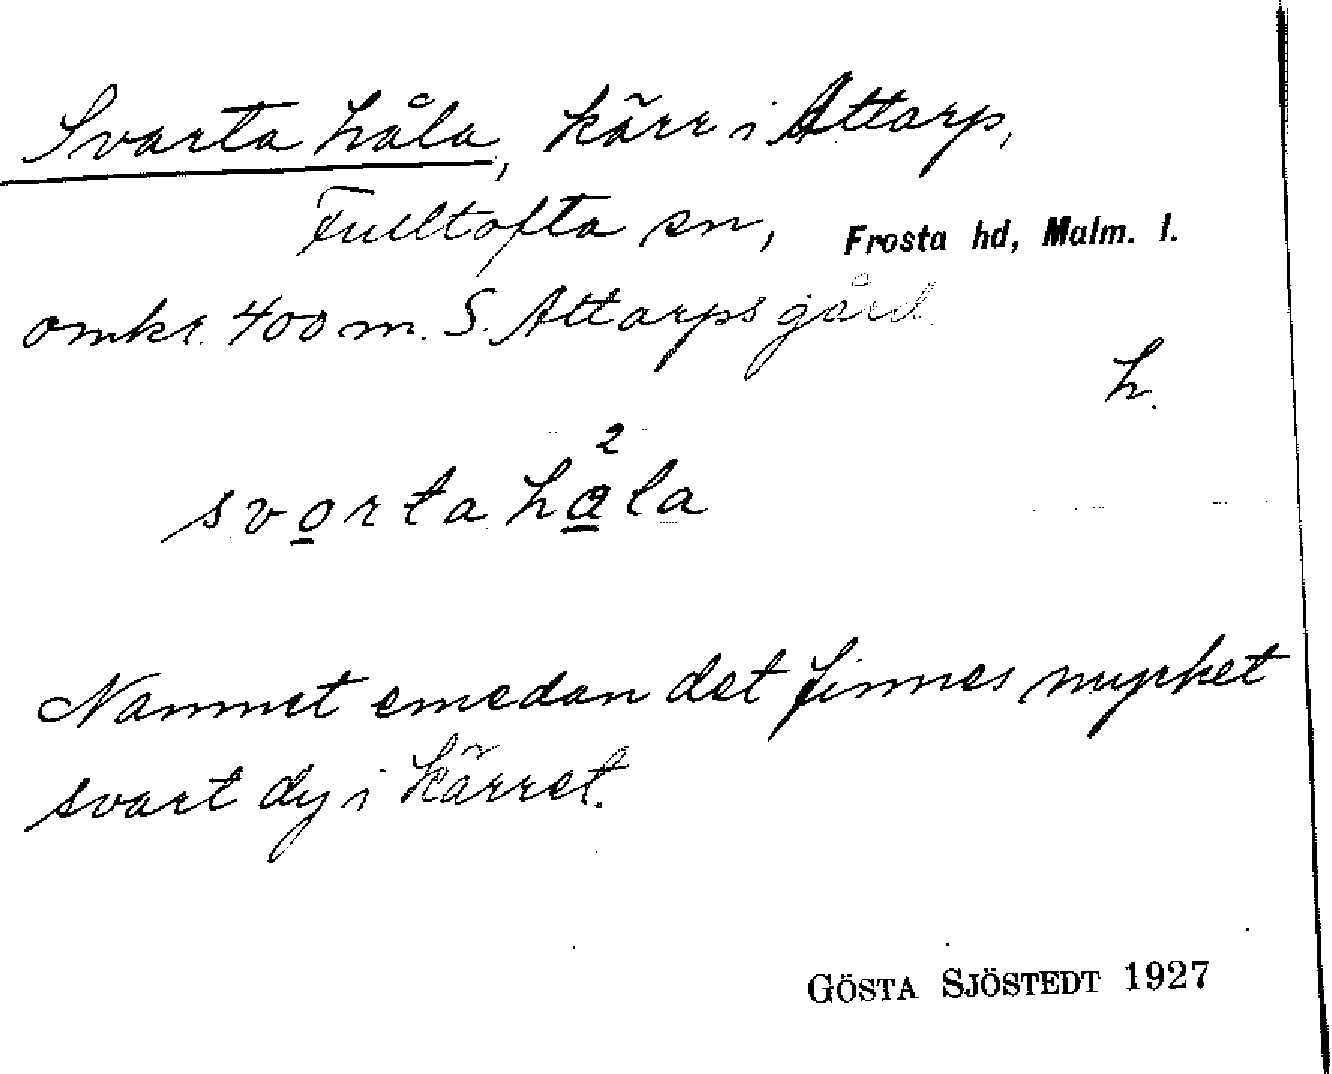 Svarta håla, kärr i Attarp,
Fulltofta sn, Frosta hd, Malm. l.
omkr. 400 m. S. Attarps gård.
h.
2
svorta hala
Namnet emedan det finnes mycket
svart dy i kärret.
GÖSTA SJÖSTEDT 1927